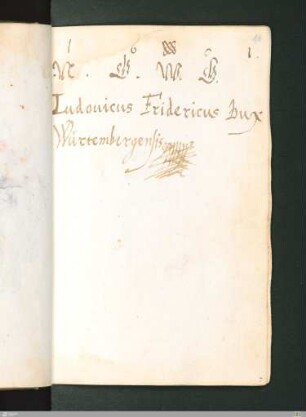 1 6 0 1.
N. G. W. G.
Ludouicus Fridericus Dux
Würtembergensis